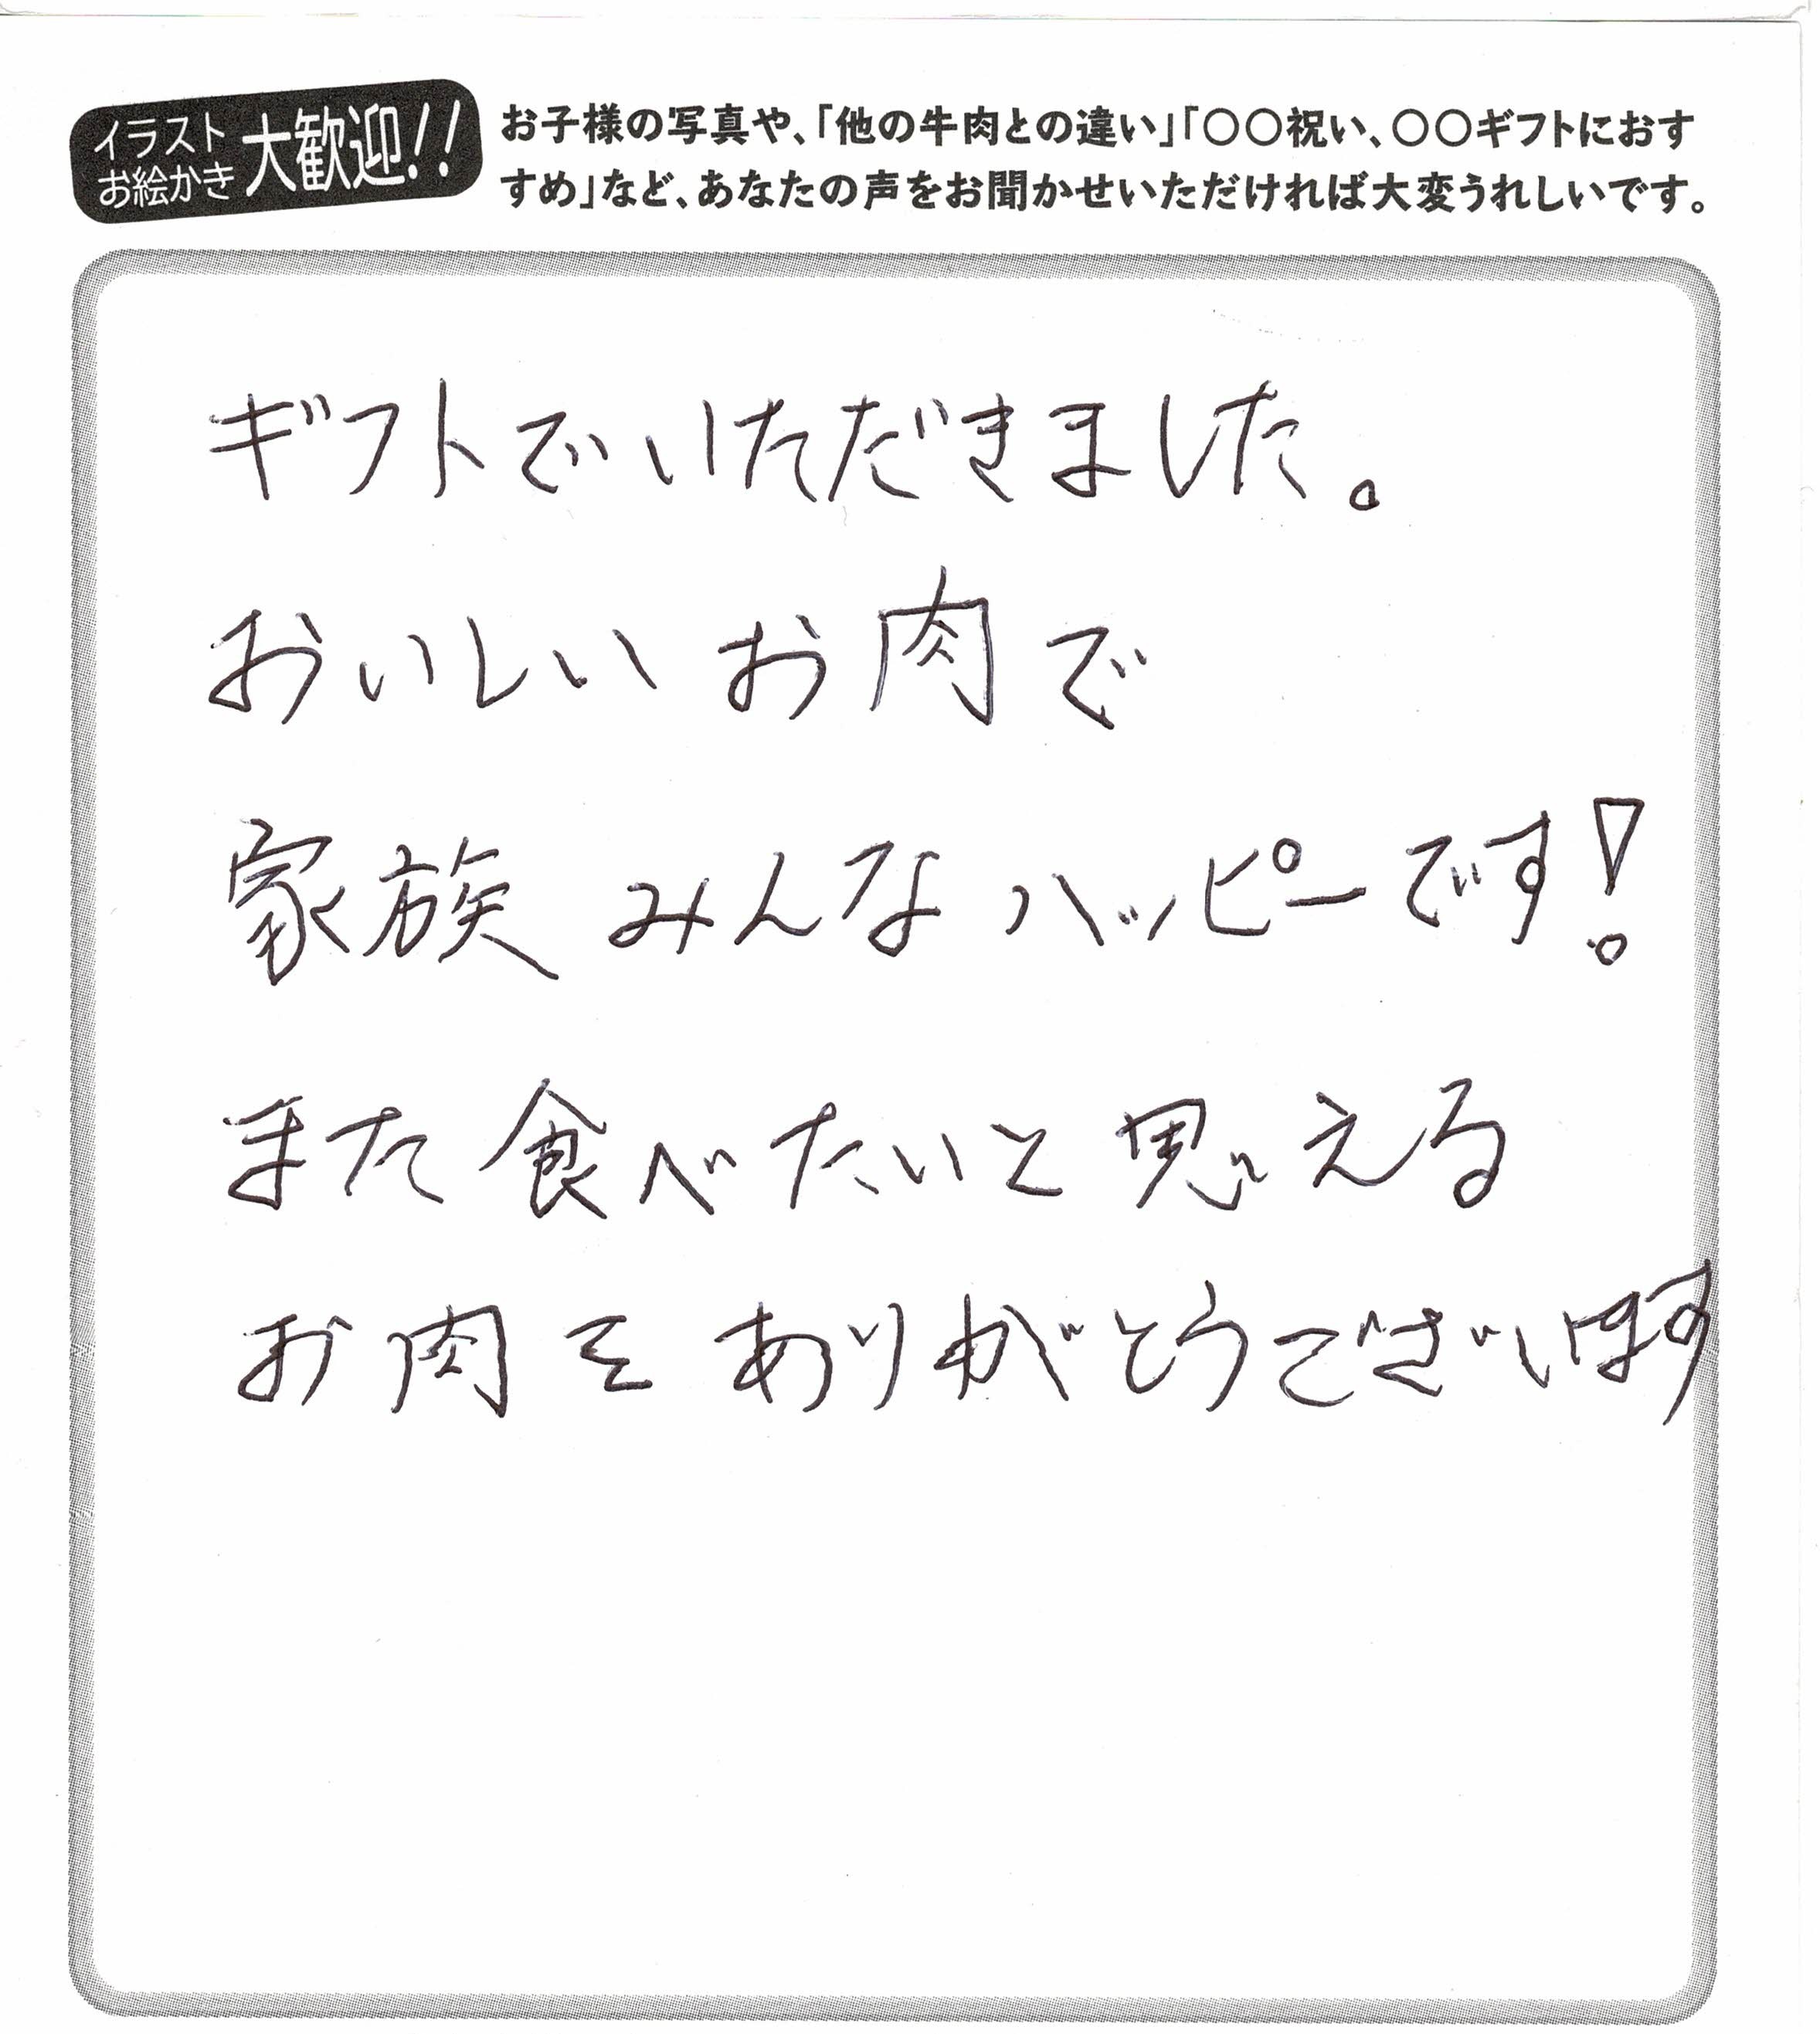 イラスト
お絵かき
大歓迎!!
お子様の写真や、「他の牛肉との違い」「〇〇祝い、〇〇ギフトにおす
すめ」など、あなたの声をお聞かせいただければ大変うれしいです。
ギフトでいただきました。
おいしいお肉で
家族みんなハッピーです!
また食べたいと思える
お肉をありがとうございます